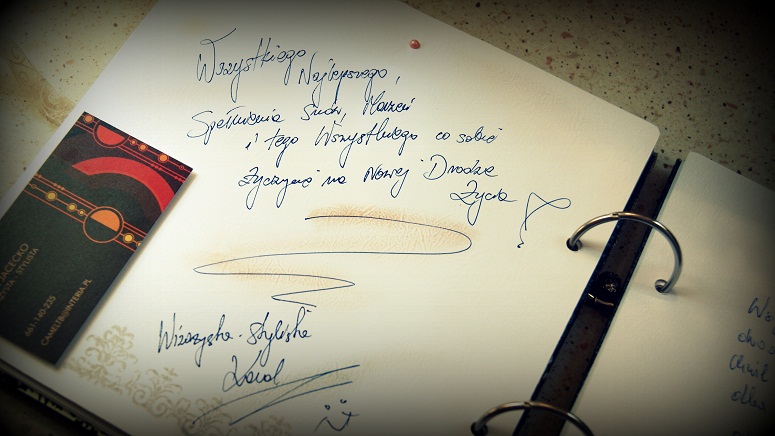 Wszystkiego Najlepszego,
Spełnienia Snów, Marzeń
i tego Wszystkiego co sobie
życzycie na Nowej Drodze
Życia
Wizażystka-Stylistka
Karol
JACECKO
STYLISTA
661-140-235
CAMELIR@INTERIA.PL